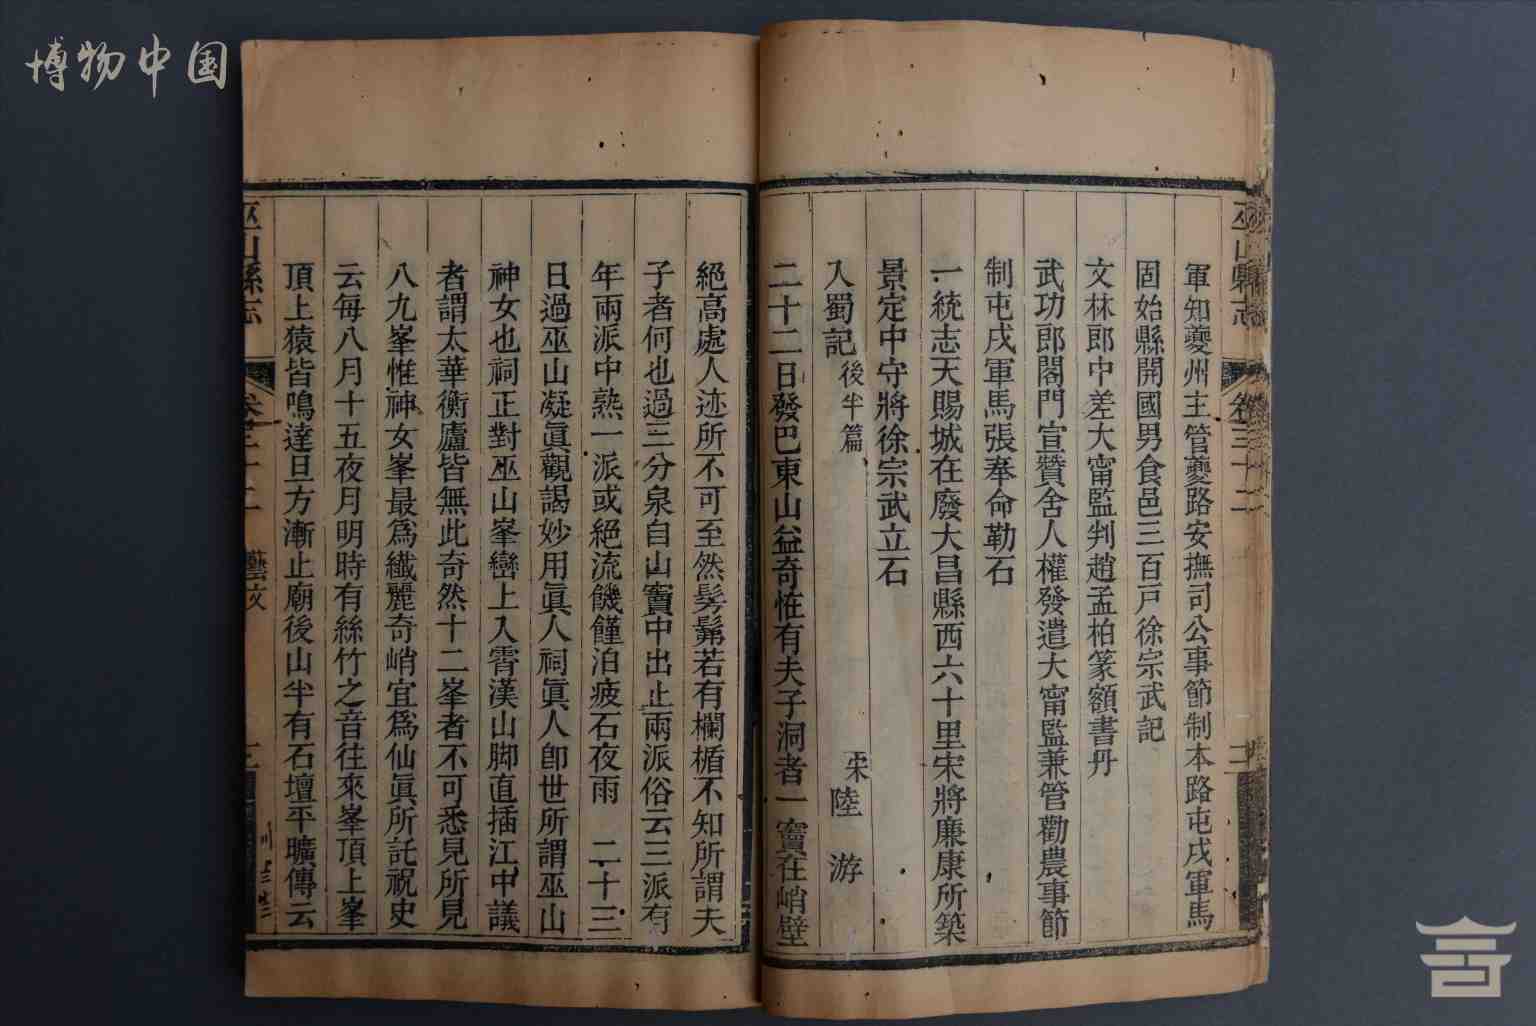 博物中国
巫山縣志 卷三十二
軍知夔州主管夔路安撫司公事節制本路屯戍軍馬
固始縣開國男食邑三百戸徐宗武記
文林郎中差大甯監判趙孟柏篆額書丹
武功郎閤門宣贊舍人權發遣大甯監兼管勸農事節
制屯戍軍馬張奉命勒石
一統志天賜城在廢大昌縣西六十里宋將廉康所築
景定中守將徐宗武立石
入蜀記後半篇 宋陸游
二十二日發巴東山益奇怪有夫子洞者一竇在峭壁
絕高處人迹所不可至然髣髴若有欄楯不知所謂夫
子者何也過三分泉自山竇中出止兩派俗云三派有
年兩派中熟一派或絕流饑饉泊疲石夜雨 二十三
日過巫山凝眞觀謁妙用眞人祠眞人卽世所謂巫山
神女也祠正對巫山峯巒上入霄漢山脚直插江中議
者謂太華衡廬皆無此奇然十二峯者不可悉見所見
八九峯惟神女峯最爲纖麗奇峭宜爲仙眞所託祝史
云每八月十五夜月明時有絲竹之音往來峯頂上峯
頂上猿皆鳴達旦方漸止廟後山半有石壇平曠傳云
巫山縣志 卷三十二 藝文